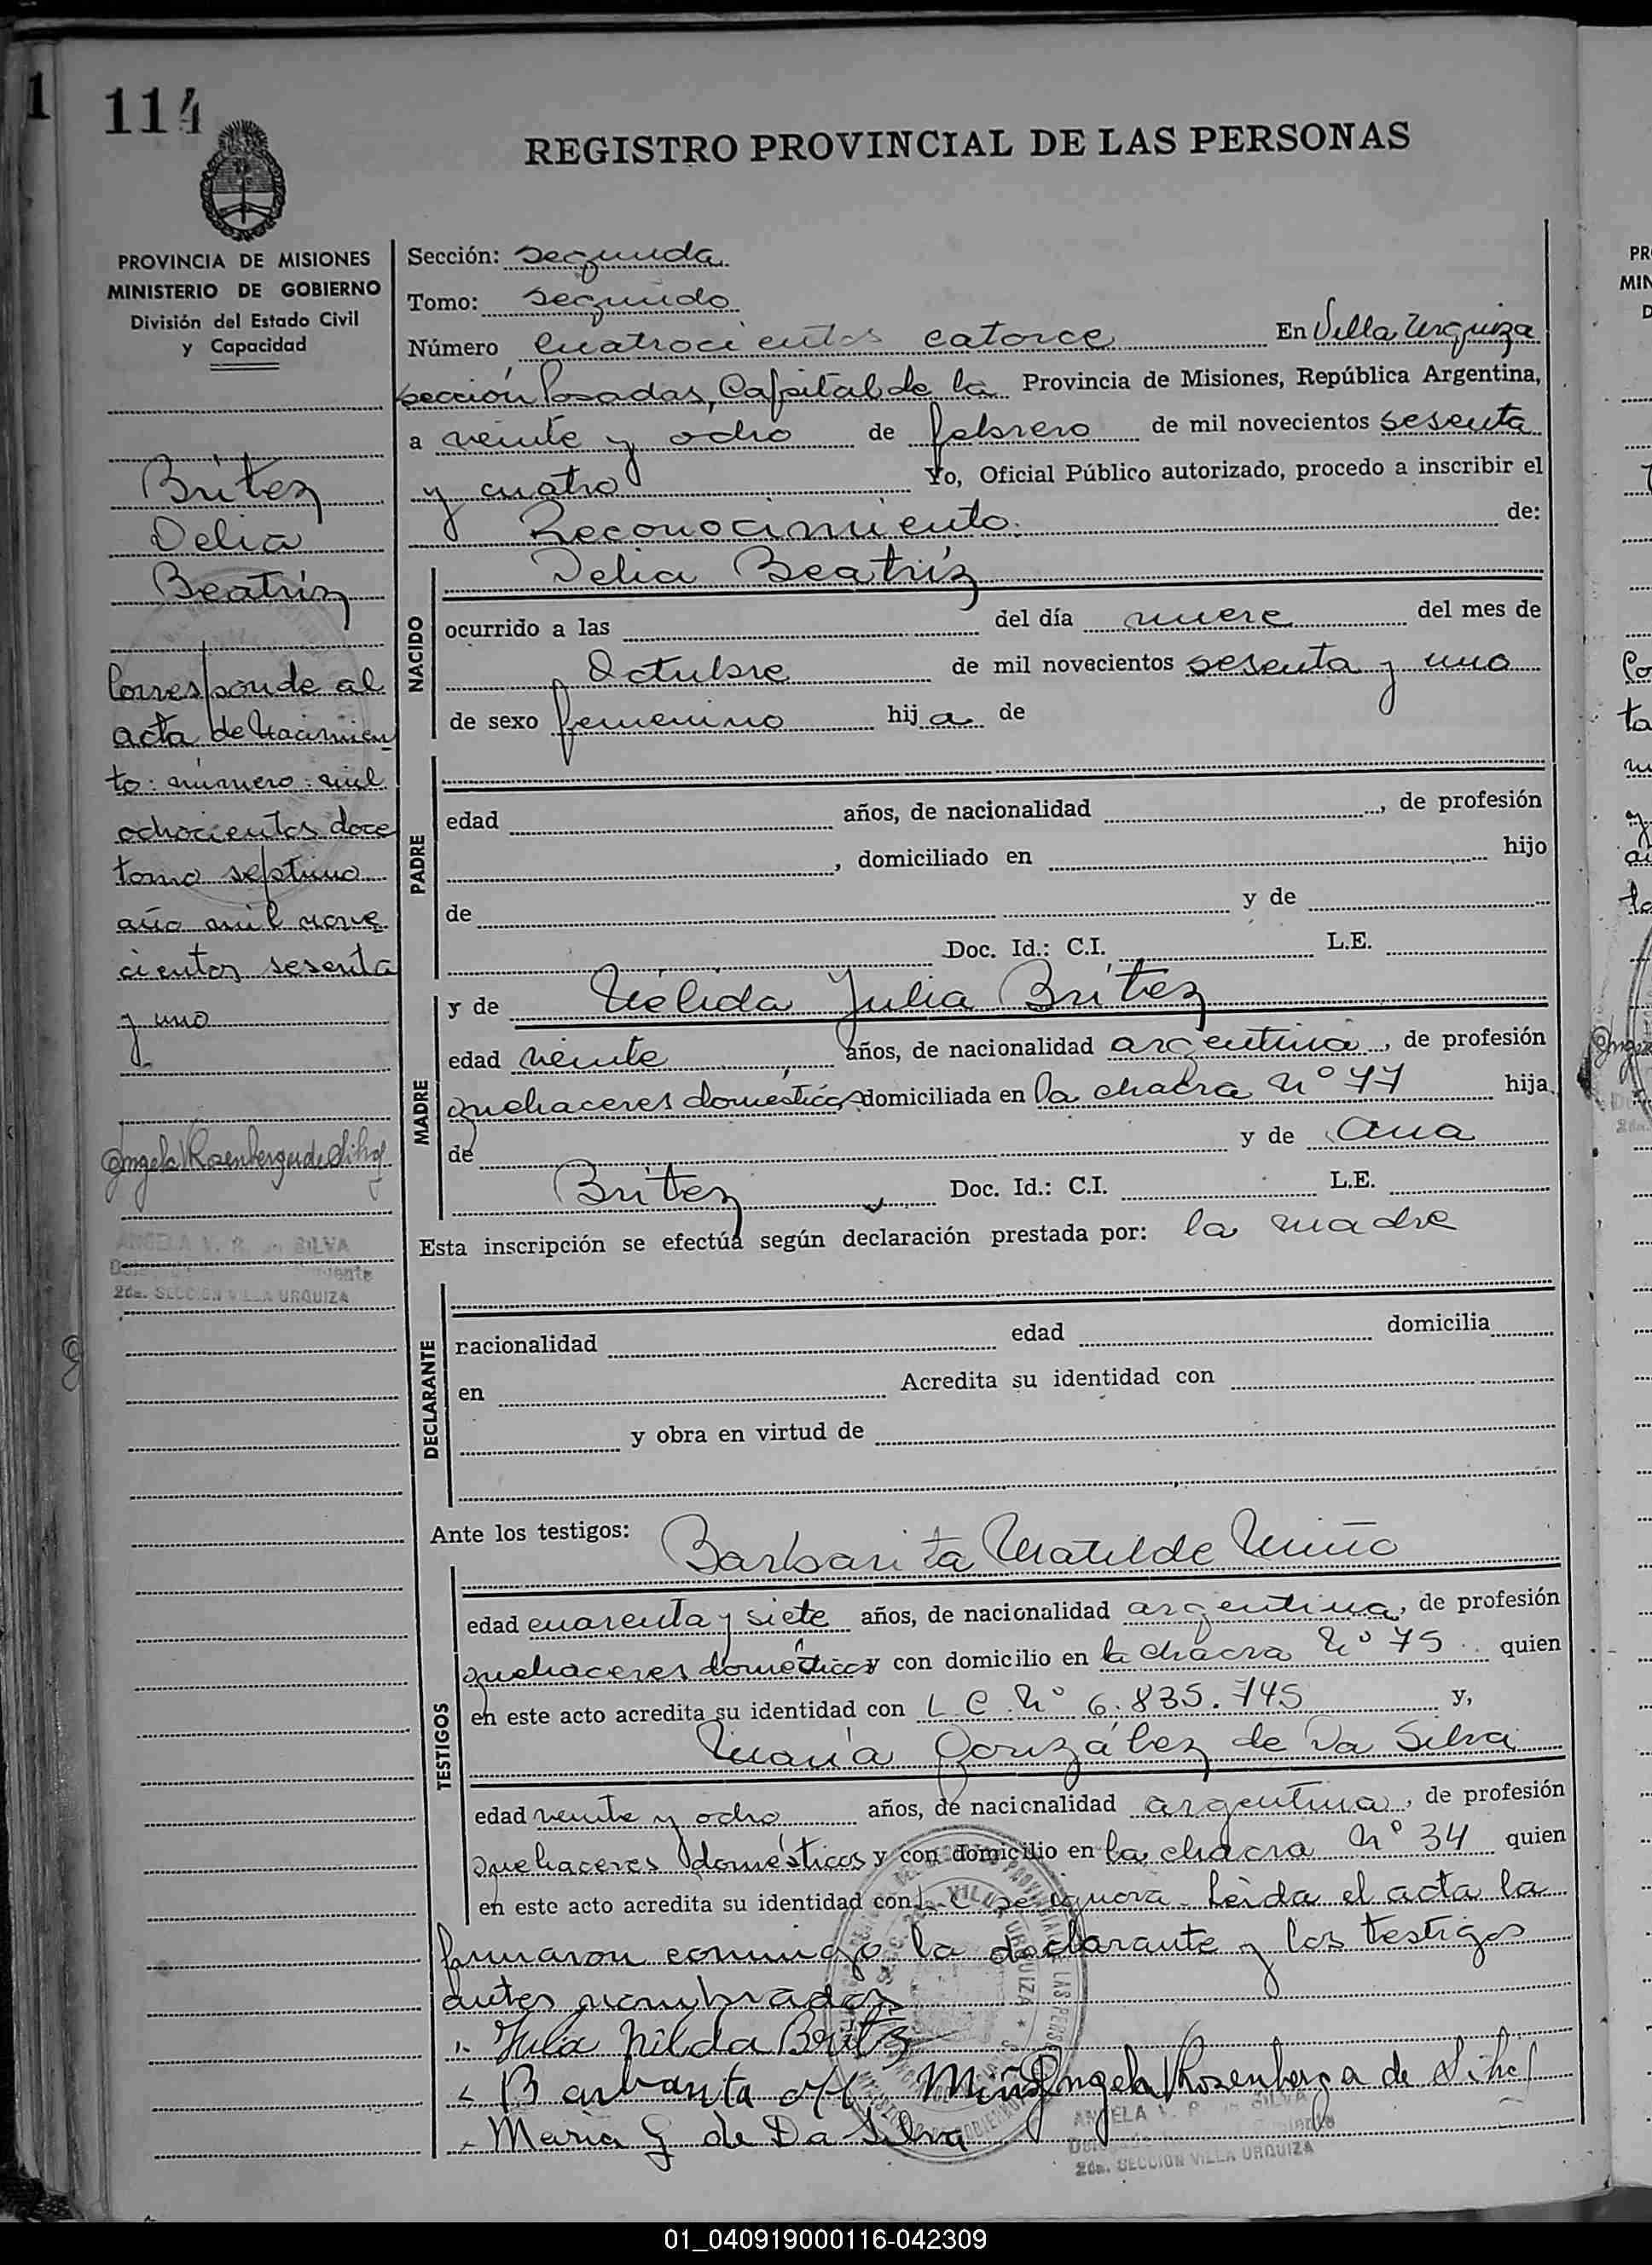 1
114
REGISTRO PROVINCIAL DE LAS PERSONAS
PROVINCIA DE MISIONES
MINISTERIO DE GOBIERNO
División del Estado Civil
y Capacidad
Britez
Delia
Beatriz
Corresponde al
acta de Nacimien
to: número: mil
ochocientos doce
tomo septimo
año mil nove
cientos sesenta
y uno
Angela V. Rosenberga de Silva
ANGELA V. R. de SILVA
2da. SECCION VILLA URQUIZA
Sección: Segunda
Tomo: Segundo
Número Cuatrocientos catorce En Villa Urquiza
sección Posadas, Capital de la Provincia de Misiones, República Argentina,
a veinte y ocho de febrero de mil novecientos sesenta
y cuatro Yo, Oficial Público autorizado, procedo a inscribir el
Reconocimiento. de:
NACIDO
Delia Beatriz
ocurrido a las del día nueve del mes de
Octubre de mil novecientos sesenta y uno
de sexo femenino hija de
PADRE
edad años, de nacionalidad , de profesión
, domiciliado en hijo
de y de
Doc. Id.: C.I. L.E.
MADRE
y de Nélida Julia Britez
edad veinte años, de nacionalidad argentina, de profesión
quehaceres domésticos domiciliada en la chacra Nº 77 hija
de y de Ana
Britez Doc. Id.: C.I. L.E.
Esta inscripción se efectúa según declaración prestada por: la madre
DECLARANTE
nacionalidad edad domicilia
en Acredita su identidad con
y obra en virtud de
Ante los testigos: Barbarita Matilde Miño
TESTIGOS
edad cuarenta y siete años, de nacionalidad argentina, de profesión
quehaceres domésticos y con domicilio en la chacra Nº 75 quien
en este acto acredita su identidad con L C. Nº 6.835.745 y,
María González de Da Silva
edad veinte y ocho años, de nacionalidad argentina, de profesión
quehaceres domésticos y con domicilio en la chacra Nº 34 quien
en este acto acredita su identidad con L.C se ignora. Leida el acta la
firmaron conmigo la declarante y los testigos
antes nombrados
Julia Nilda Britez
Barbarita M. Miño Angela V. Rosenberga de Silva
María G de Da Silva
ANGELA V. R. de SILVA
2da. SECCION VILLA URQUIZA
01_040919000116-042309